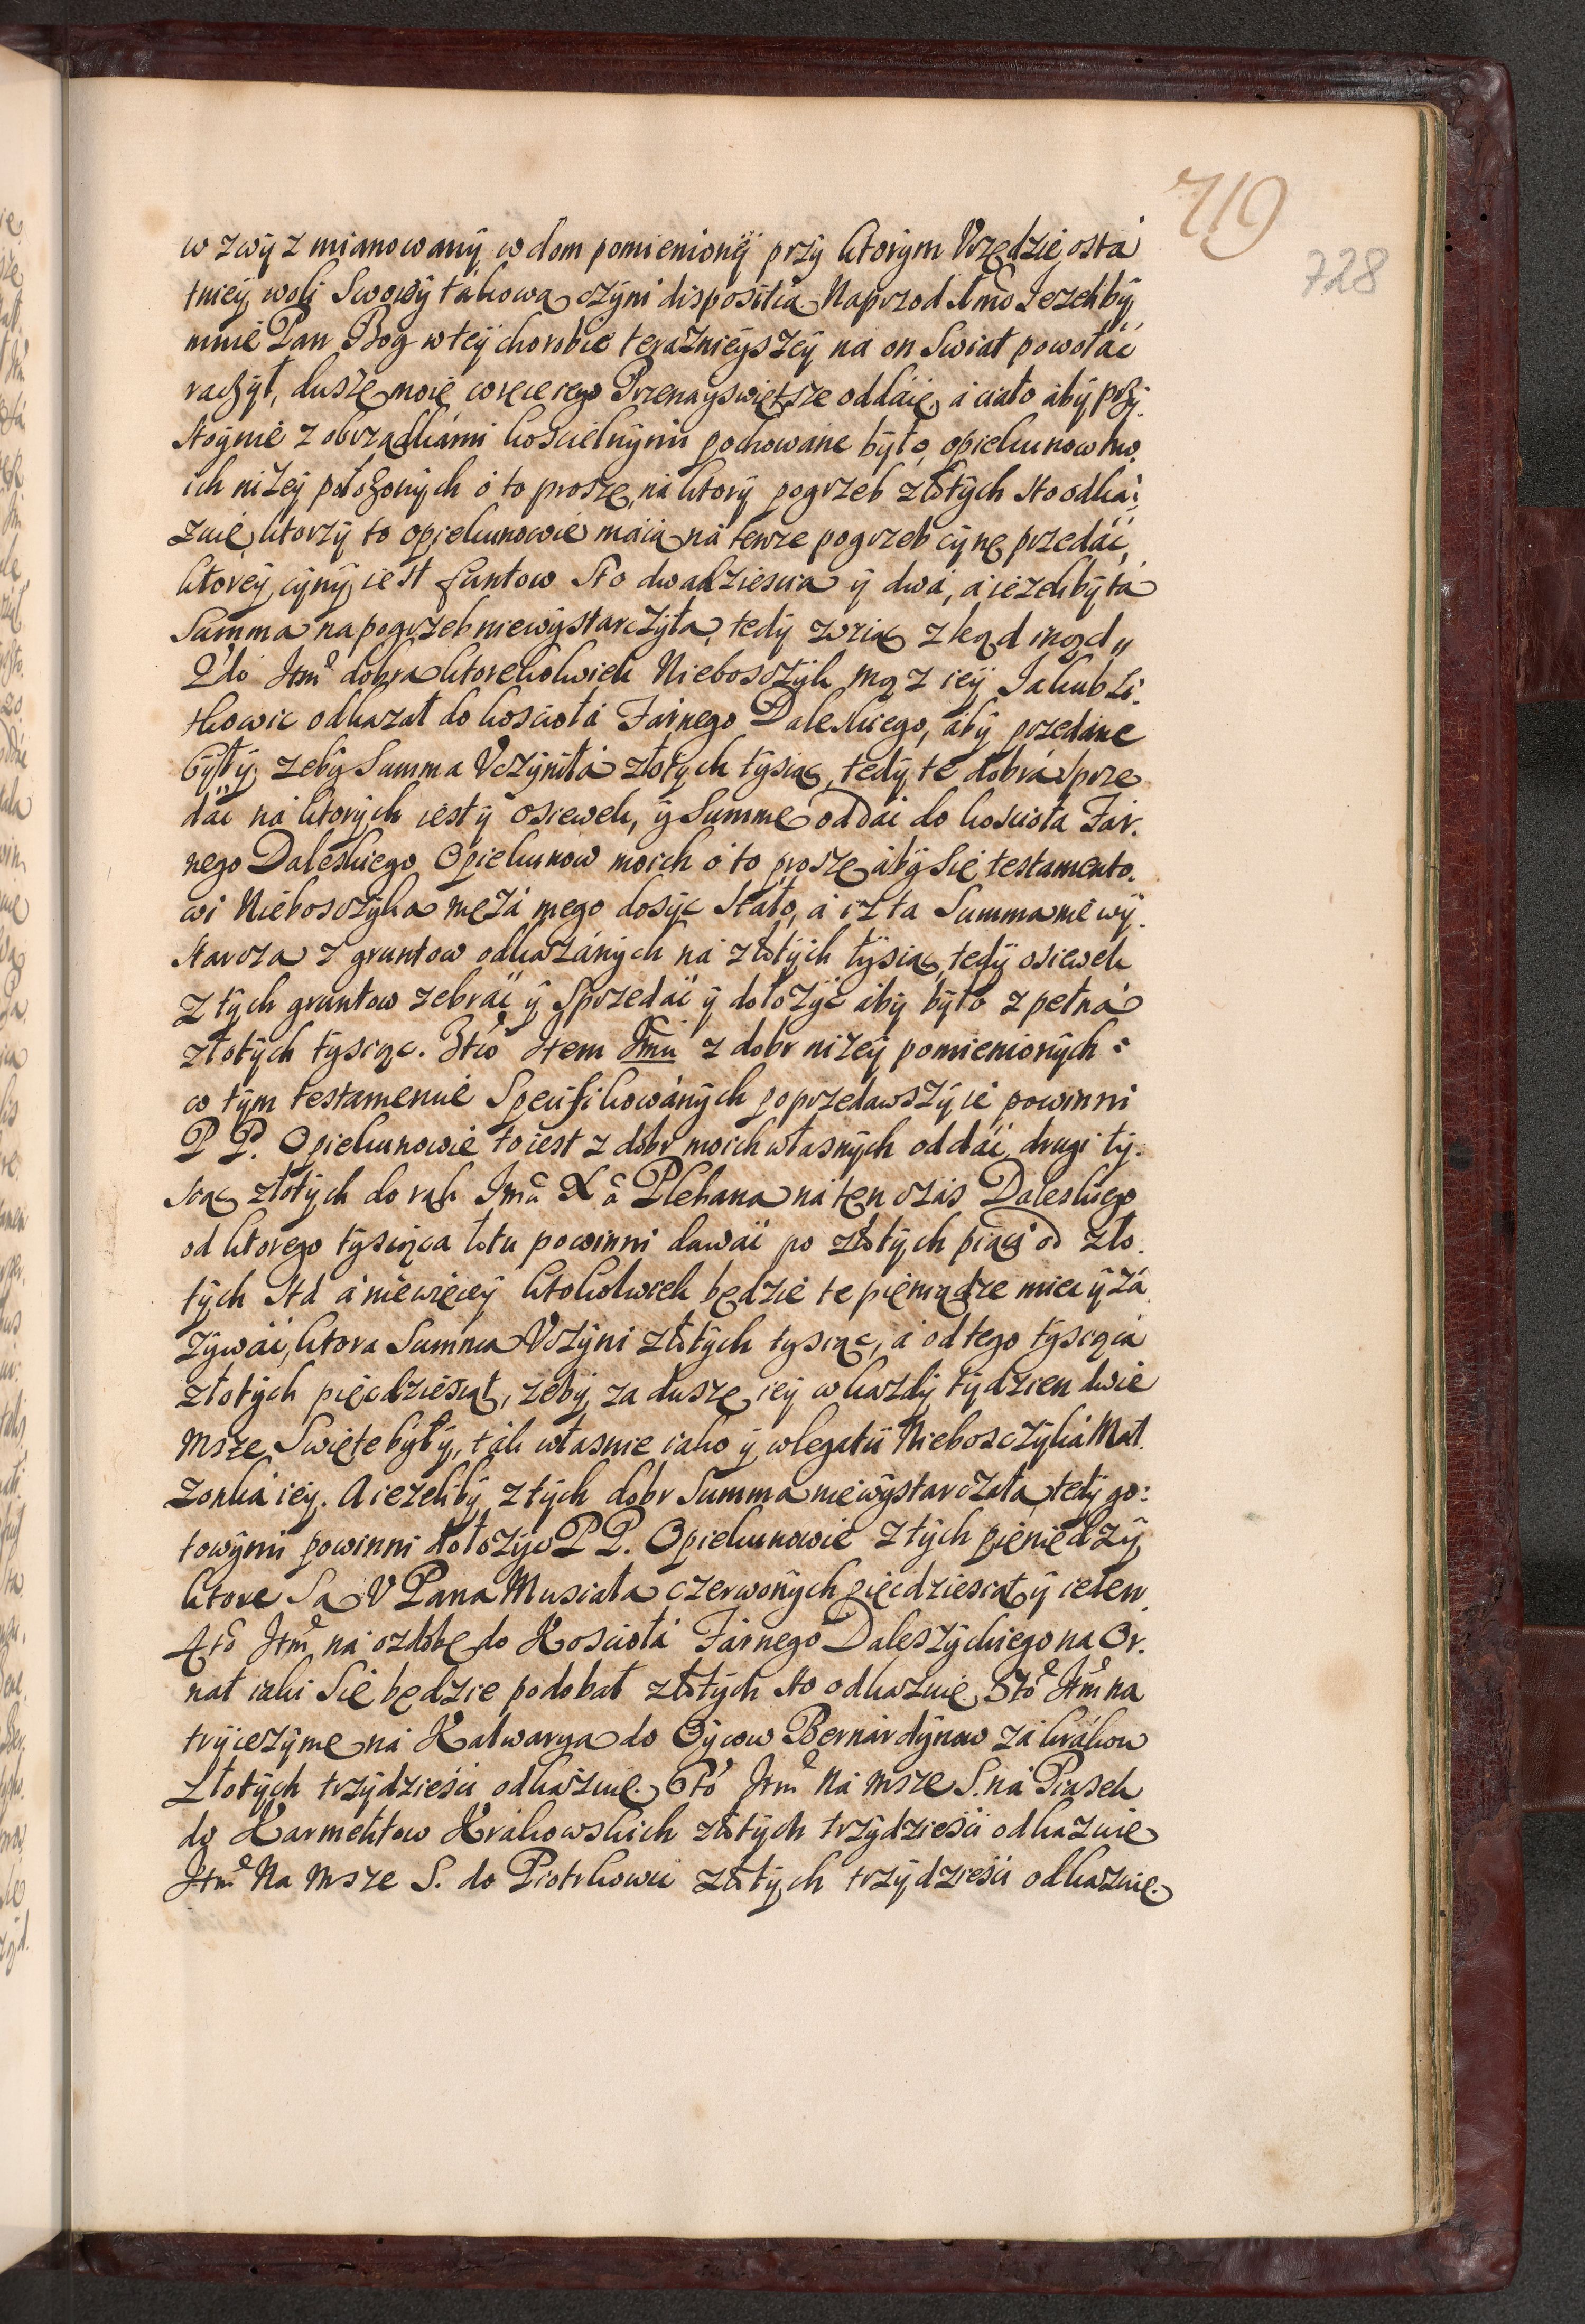 719
728
w zwyż mianowany w dom pomieniony przy ktorym Vrzędzie osta
tniey woli Swoiey takową czyni disposītią. Naprzod Imo Iezeliby
mnie Pan Bog w tey chorobie teraznieyszey na on Swiat powołac
raczył, duszę moię w ręce iego Przenayswiętsze oddaię, a ciało aby przy.
stoynie z obrządkami koscielnymi pochowane było, opiekunow mo
ich niżey położonych o to proszę, na ktory pogrzeb złotych sto odka:
zuię, ktorzy to opiekunowie maią na tenze pogrzeb cynę przedac,
ktorey cyny iest funtow sto dwadziescia y dwa, a iezeliby ta
Summa na pogrzeb niewystarczyła, tedy wziąc zkąd inąd,,
2do Itm dobra ktorekolwiek Nieboszczyk mąż iey Iakub Li:
tkowic odkazał do koscioła Farnego Daleskiego, aby przedane
były, zeby Summa Vczyniła złotych tysiąc, tedy te dobra sprze
dac na ktorych iest y osiewek, y Summę oddac do koscioła Far.
nego Daleskiego Opiekunow moich o to proszę aby się testamento.
wi Nieboszczyka męża mego dosyc stało, a iz ta Summa nie wy.
starcza z gruntow odkazanych na złotych tysiąc, tedy osiewek
z tych gruntow zebrac y sprzedac y dołożyc aby było zpełna
złotych tysiąc. 3tio Item z dobr niżey pomienionych :
w tym testamencie Specifikowanych poprzedawszy ie powinni
P P. Opiekunowie to iest z dobr moich własnych oddac drugi ty:
siąc złotych do rąk Imci Xa Plebana na ten czas Daleskiego
od ktorego tysiąca koztu powinni dawac po złotych pięci od zło.
tych sta a niewięcey ktokolwiek będzie te pieniądze miec y za
zywac, ktora Summa Vczyni złotych tysiąc, a od tego tysiąca
złotych pięcdziesiąt, zeby za duszę iey w kazdy tydzien dwie
Msze Swięte były, tak własnie iako y w legatii Nieboszczyka Mał
zonka iey. A iezeliby z tych dobr Summa niewystarczała, tedy go:
towymi powinni dołożyc P P. Opiekunowie z tych pieniędzy
ktore Są V Pana Musiała czerwonych pięcdziesiąt y ieden.
4to Itm na ozdobę do Kosciola Farnego Daleszyckiego na Or.
nat iaki Się będzie podobał złotych sto odkazuię. 5to Itm na
trycezymę na Kalwaryą do Oycow Bernardynow za krakow
złotych trzydziesci odkazuię. 6to Itm Na msze S. na Piasek
do Karmelitow Krakowskich złotych trzydziesci odkazuię
Itm Na Msze S. do Piotrkowic złotych trzydziesci odkazuię.